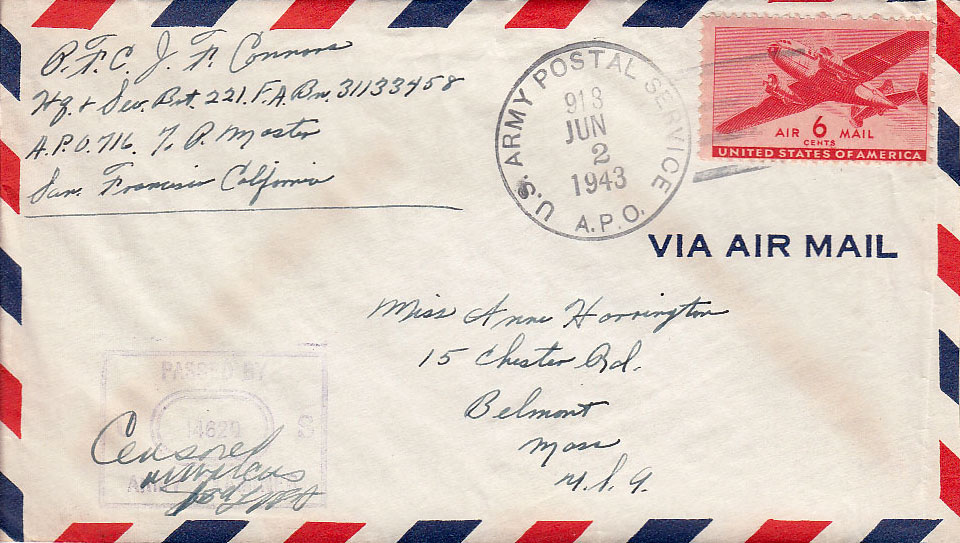 P.F.C. J. F. Connors
Hq. & Sev. Bat. 221. F.A. Bn. 31133458
A.P.O. 716. % P. Master
San. Francisco California
U.S. ARMY POSTAL SERVICE
913
JUN
2
1943
A.P.O.
AIR 6 MAIL
CENTS
UNITED STATES OF AMERICA
VIA AIR MAIL
Miss Anne Harrington
15 Chester Rd.
Belmont
Mass
U.S.A.
PASSED BY
U 14629 S
Censored